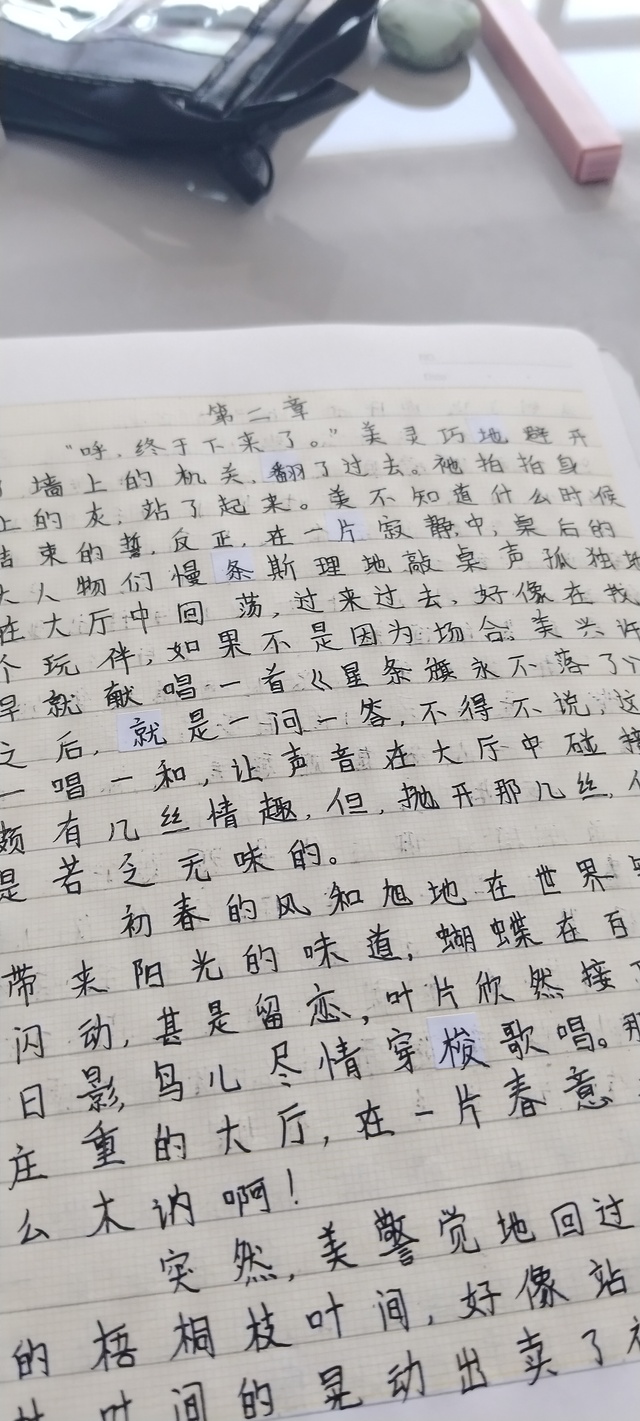 第二章
“呼，终于下来了。”美灵巧地避开
墙上的机关，翻了过去。祂拍拍身
上的灰，站了起来。美不知道什么时候
结束的誓，反正，在一片寂静中，桌后的
大人物们慢条斯理地敲桌声孤独地
在大厅中回荡，过来过去，好像在找
个玩伴，如果不是因为场合，美兴许
早就献唱一首《星条旗永不落了
之后，就是一问一答，不得不说，这
一唱一和，让声音在大厅中碰撞
颇有几丝情趣，但，抛开那几丝，
是若乏无味的。
初春的风和旭地在世界
带来阳光的味道，蝴蝶在百
闪动，甚是留恋，叶片欣然接
日影，鸟儿尽情穿梭歌唱。那
庄重的大厅，在一片春意
么木讷啊！
突然，美警觉地回过
的梧桐枝叶间，好像站
叶间的晃动出卖了